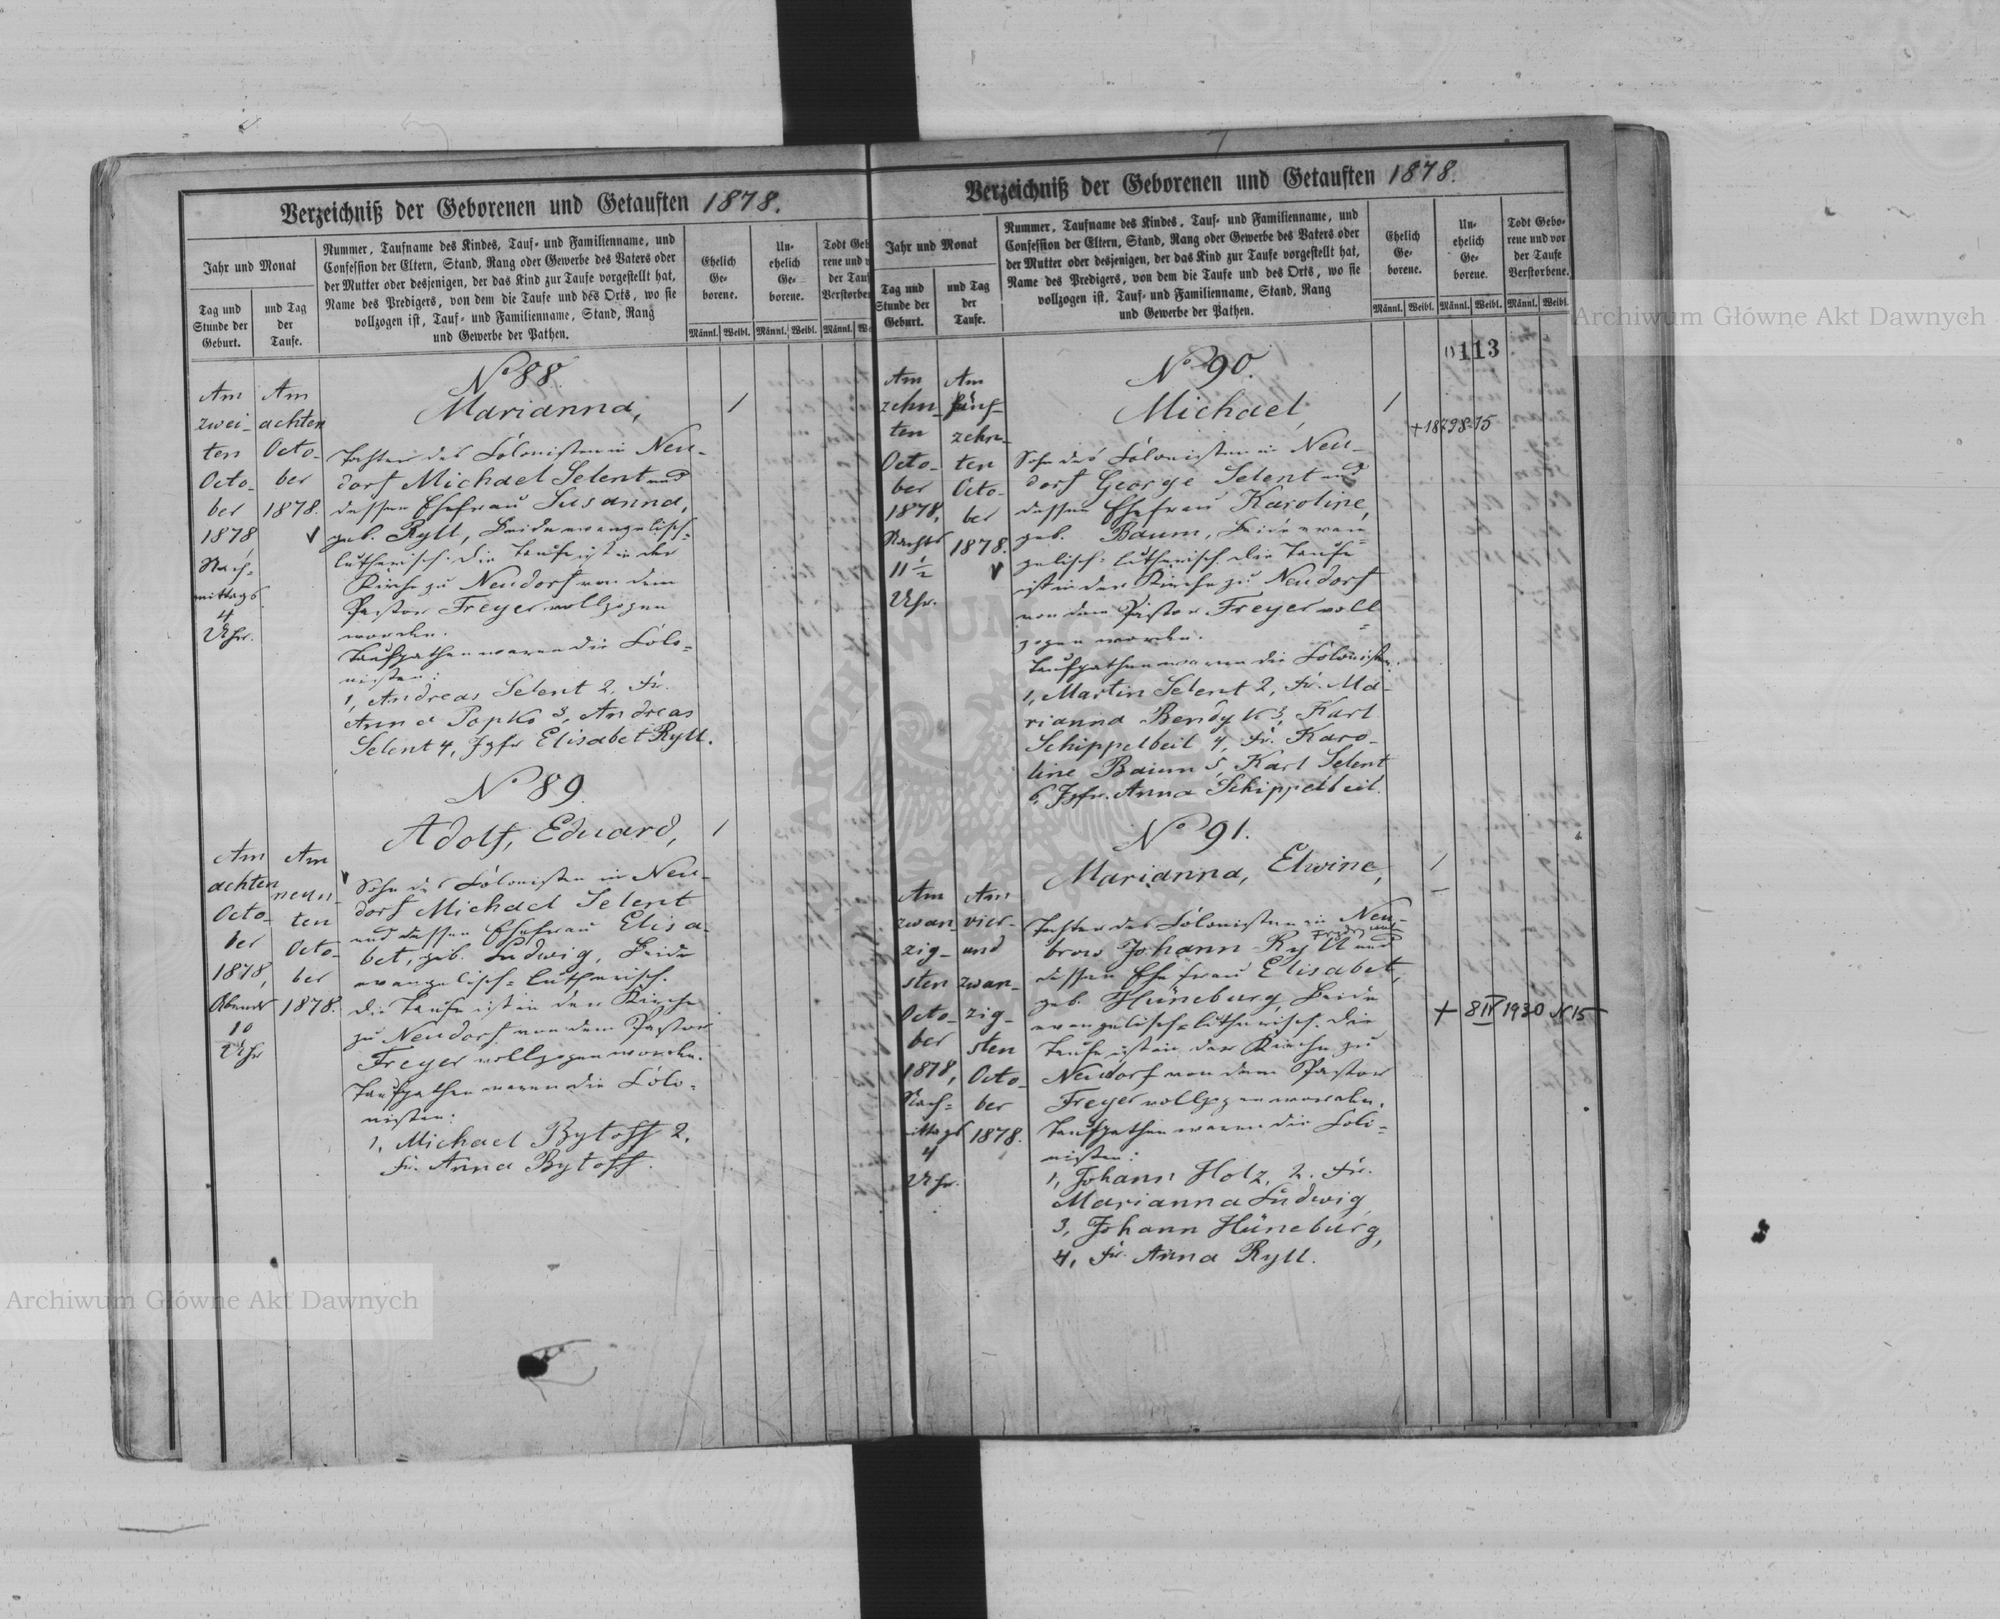 Verzeichniß der Geborenen und Getauften 1878.
Jahr und Monat
Tag und
Stunde der
Geburt.
und Tag
der
Taufe.
Nummer, Taufname des Kindes, Tauf- und Familienname, und
Confession der Eltern, Stand, Rang oder Gewerbe des Vaters oder
der Mutter oder desjenigen, der das Kind zur Taufe vorgestellt hat,
Name des Predigers, von dem die Taufe und des Orts, wo sie
vollzogen ist, Tauf- und Familienname, Stand, Rang
und Gewerbe der Pathen.
Ehelich
Ge-
borene.
Un-
ehelich
Ge-
borene.
Todt Geb
rene und v
der Tau
Verstorbe
Männl. Weibl. Männl. Weibl. Männl. We
Am
zwei-
ten
Octo-
ber
1878
Nach-
mittags
4
Uhr.
Am
achten
Octo-
ber
1878.
No 88.
Marianna,
1
Tochter des Colonisten in Neu-
dorf Michael Selent und
dessen Ehefrau Susanna,
geb. Ryll, Beide evangelisch-
lutherisch. Die Taufe ist in der
Kirche zu Neudorf von dem
Pastor Freyer vollzogen
worden.
Taufpathen waren die Colo-
nisten:
1, Andreas Selent 2, Fr.
Anna Popko 3, Andreas
Selent 4, Jgfr Elisabet Ryll.
Am
achten
Octo-
ber
1878,
Abends
10
Uhr
Am
neun-
ten
Octo-
ber
1878.
No 89.
Adolf, Eduard,
1
Sohn des Colonisten in Neu-
dorf Michael Selent
und dessen Ehefrau Elisa-
bet, geb. Ludwig, Beide
evangelisch-lutherisch.
Die Taufe ist in der Kirche
zu Neudorf von dem Pastor
Freyer vollzogen worden.
Taufpathen waren die Colo-
nisten:
1, Michael Bytoff 2,
Fr. Anna Bytoff.
Verzeichniß der Geborenen und Getauften 1878.
Jahr und Monat
Tag und
Stunde der
Geburt.
und Tag
der
Taufe.
Nummer, Taufname des Kindes, Tauf- und Familienname, und
Confession der Eltern, Stand, Rang oder Gewerbe des Vaters oder
der Mutter oder desjenigen, der das Kind zur Taufe vorgestellt hat,
Name des Predigers, von dem die Taufe und des Orts, wo sie
vollzogen ist, Tauf- und Familienname, Stand, Rang
und Gewerbe der Pathen.
Ehelich
Ge-
borene.
Un-
ehelich
Ge-
borene.
Todt Gebo-
rene und vor
der Taufe
Verstorbene.
Männl. Weibl. Männl. Weibl. Männl. Weibl.
113
Am
zehn-
ten
Octo-
ber
1878,
Nachts
11 1/2
Uhr.
Am
fünf-
zehn-
ten
Octo-
ber
1878.
No 90.
Michael,
1
Sohn des Colonisten in Neu-
dorf George Selent und
dessen Ehefrau Karoline,
geb. Baum, Beide evan-
gelisch-lutherisch. Die Taufe
ist in der Kirche zu Neudorf
von dem Pastor Freyer voll-
zogen worden.
Taufpathen waren die Colonisten:
1, Martin Selent 2, Fr. Ma-
rianna Bendyk 3, Karl
Schippelbeil 4, Fr. Karo-
line Baum 5, Karl Selent
6, Jgfr. Anna Schippelbeil.
Am
zwan-
zig-
sten
Octo-
ber
1878,
Nach-
mittags
4
Uhr.
Am
vier-
und
zwan-
zig-
sten
Octo-
ber
1878.
No 91.
Marianna, Elwine,
1
Tochter des Colonisten in Neu-
brow Johann Ryll und
dessen Ehefrau Elisabet,
geb. Hüneburg, Beide
evangelisch-lutherisch. Die
Taufe ist in der Kirche zu
Neudorf von dem Pastor
Freyer vollzogen worden.
Taufpathen waren die Colo-
nisten:
1, Johann Holz, 2. Fr.
Marianna Ludwig,
3, Johann Hüneburg,
4, Fr. Anna Ryll.
+ 8 IV 1930 N 15
Archiwum Główne Akt Dawnych
Archiwum Główne Akt Dawnych